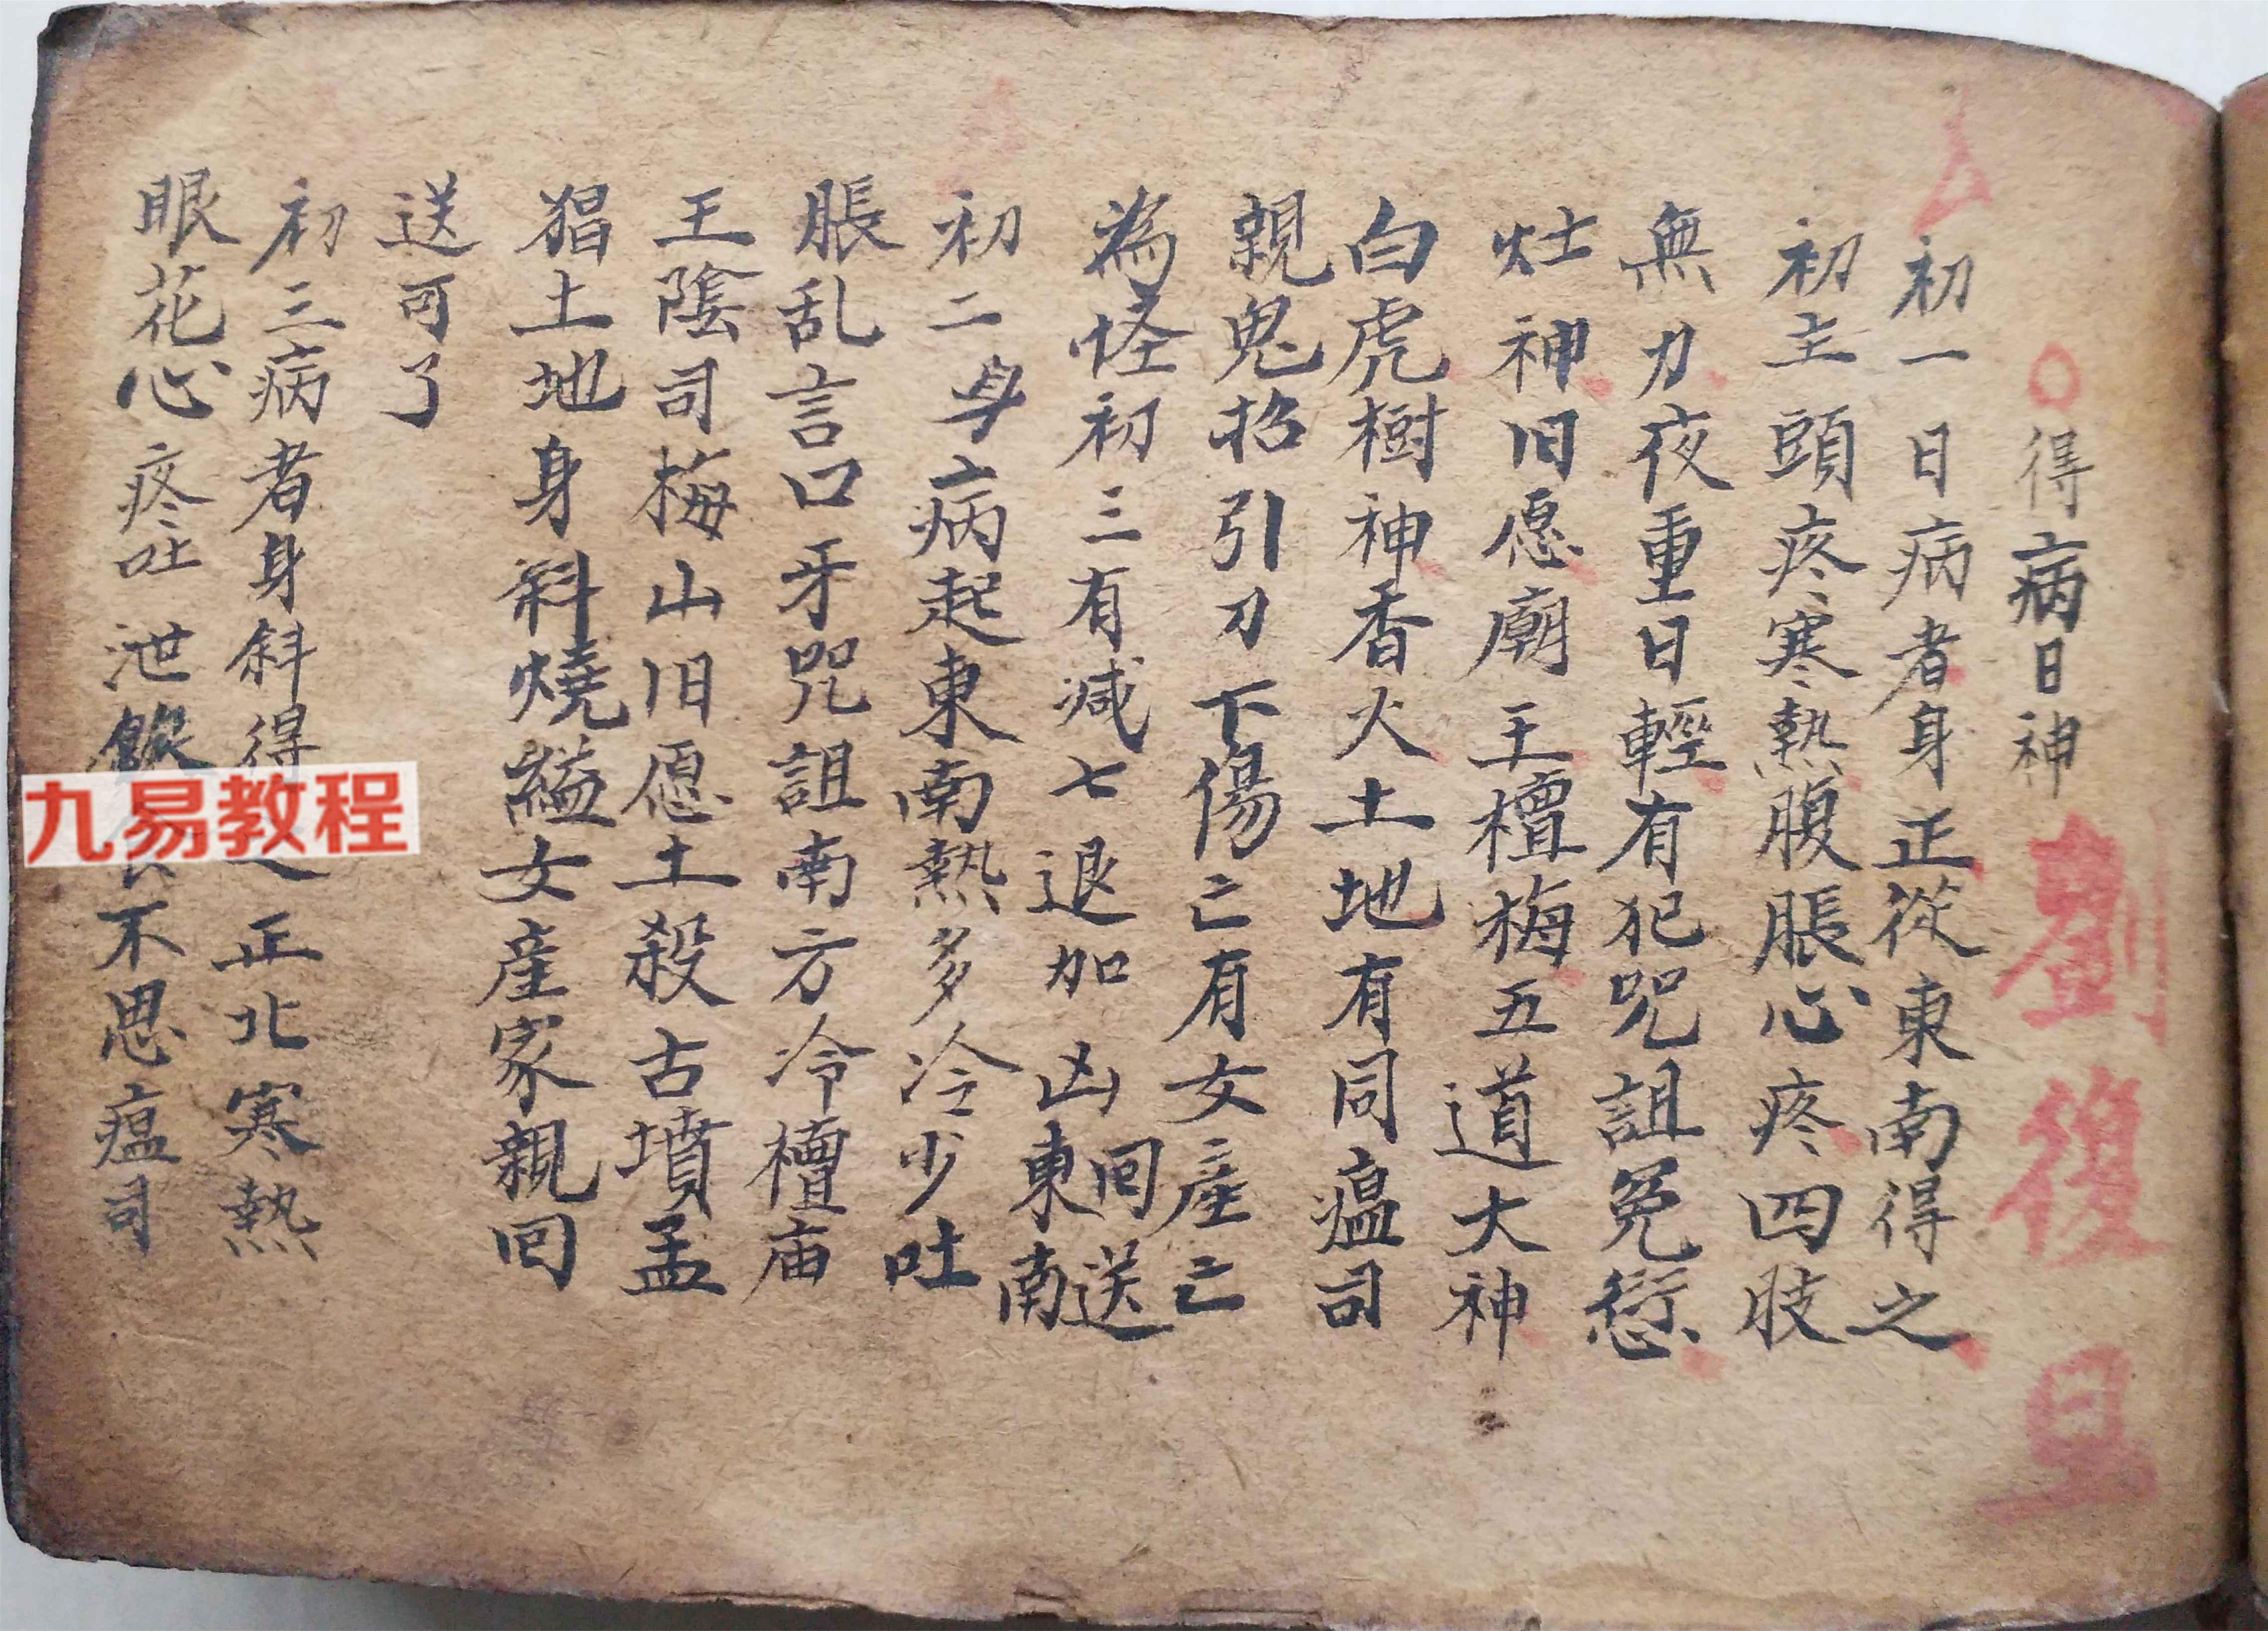 得病日神
劉復旦
初一日病者身正從東南得之
初主頭疼寒熱腹脹心疼四肢
無力夜重日輕有犯咒詛冤愆
灶神旧愿廟王檀梅五道大神
白虎樹神香火土地有同瘟司
親鬼招引刀下傷亡有女産亡
為怪初三有减七退加凶東南回送
初二身病起東南熱多冷少吐
脹乱言口牙咒詛南方冷檀庙
王陰司梅山旧愿土殺古墳孟
猖土地身斜燒縊女産家親回
送可了
初三病者身斜得之正北寒熱
眼花心疼吐泄飲食不思瘟司
九易教程